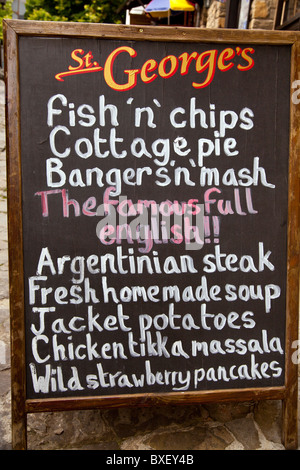 St. George's
Fish 'n' chips
Cottage pie
Bangers 'n' mash
The famous full
english!!
Argentinian steak
Fresh homemade soup
Jacket potatoes
Chicken tikka massala
Wild strawberry pancakes
alamy
Image ID: BXEY4B
www.alamy.com